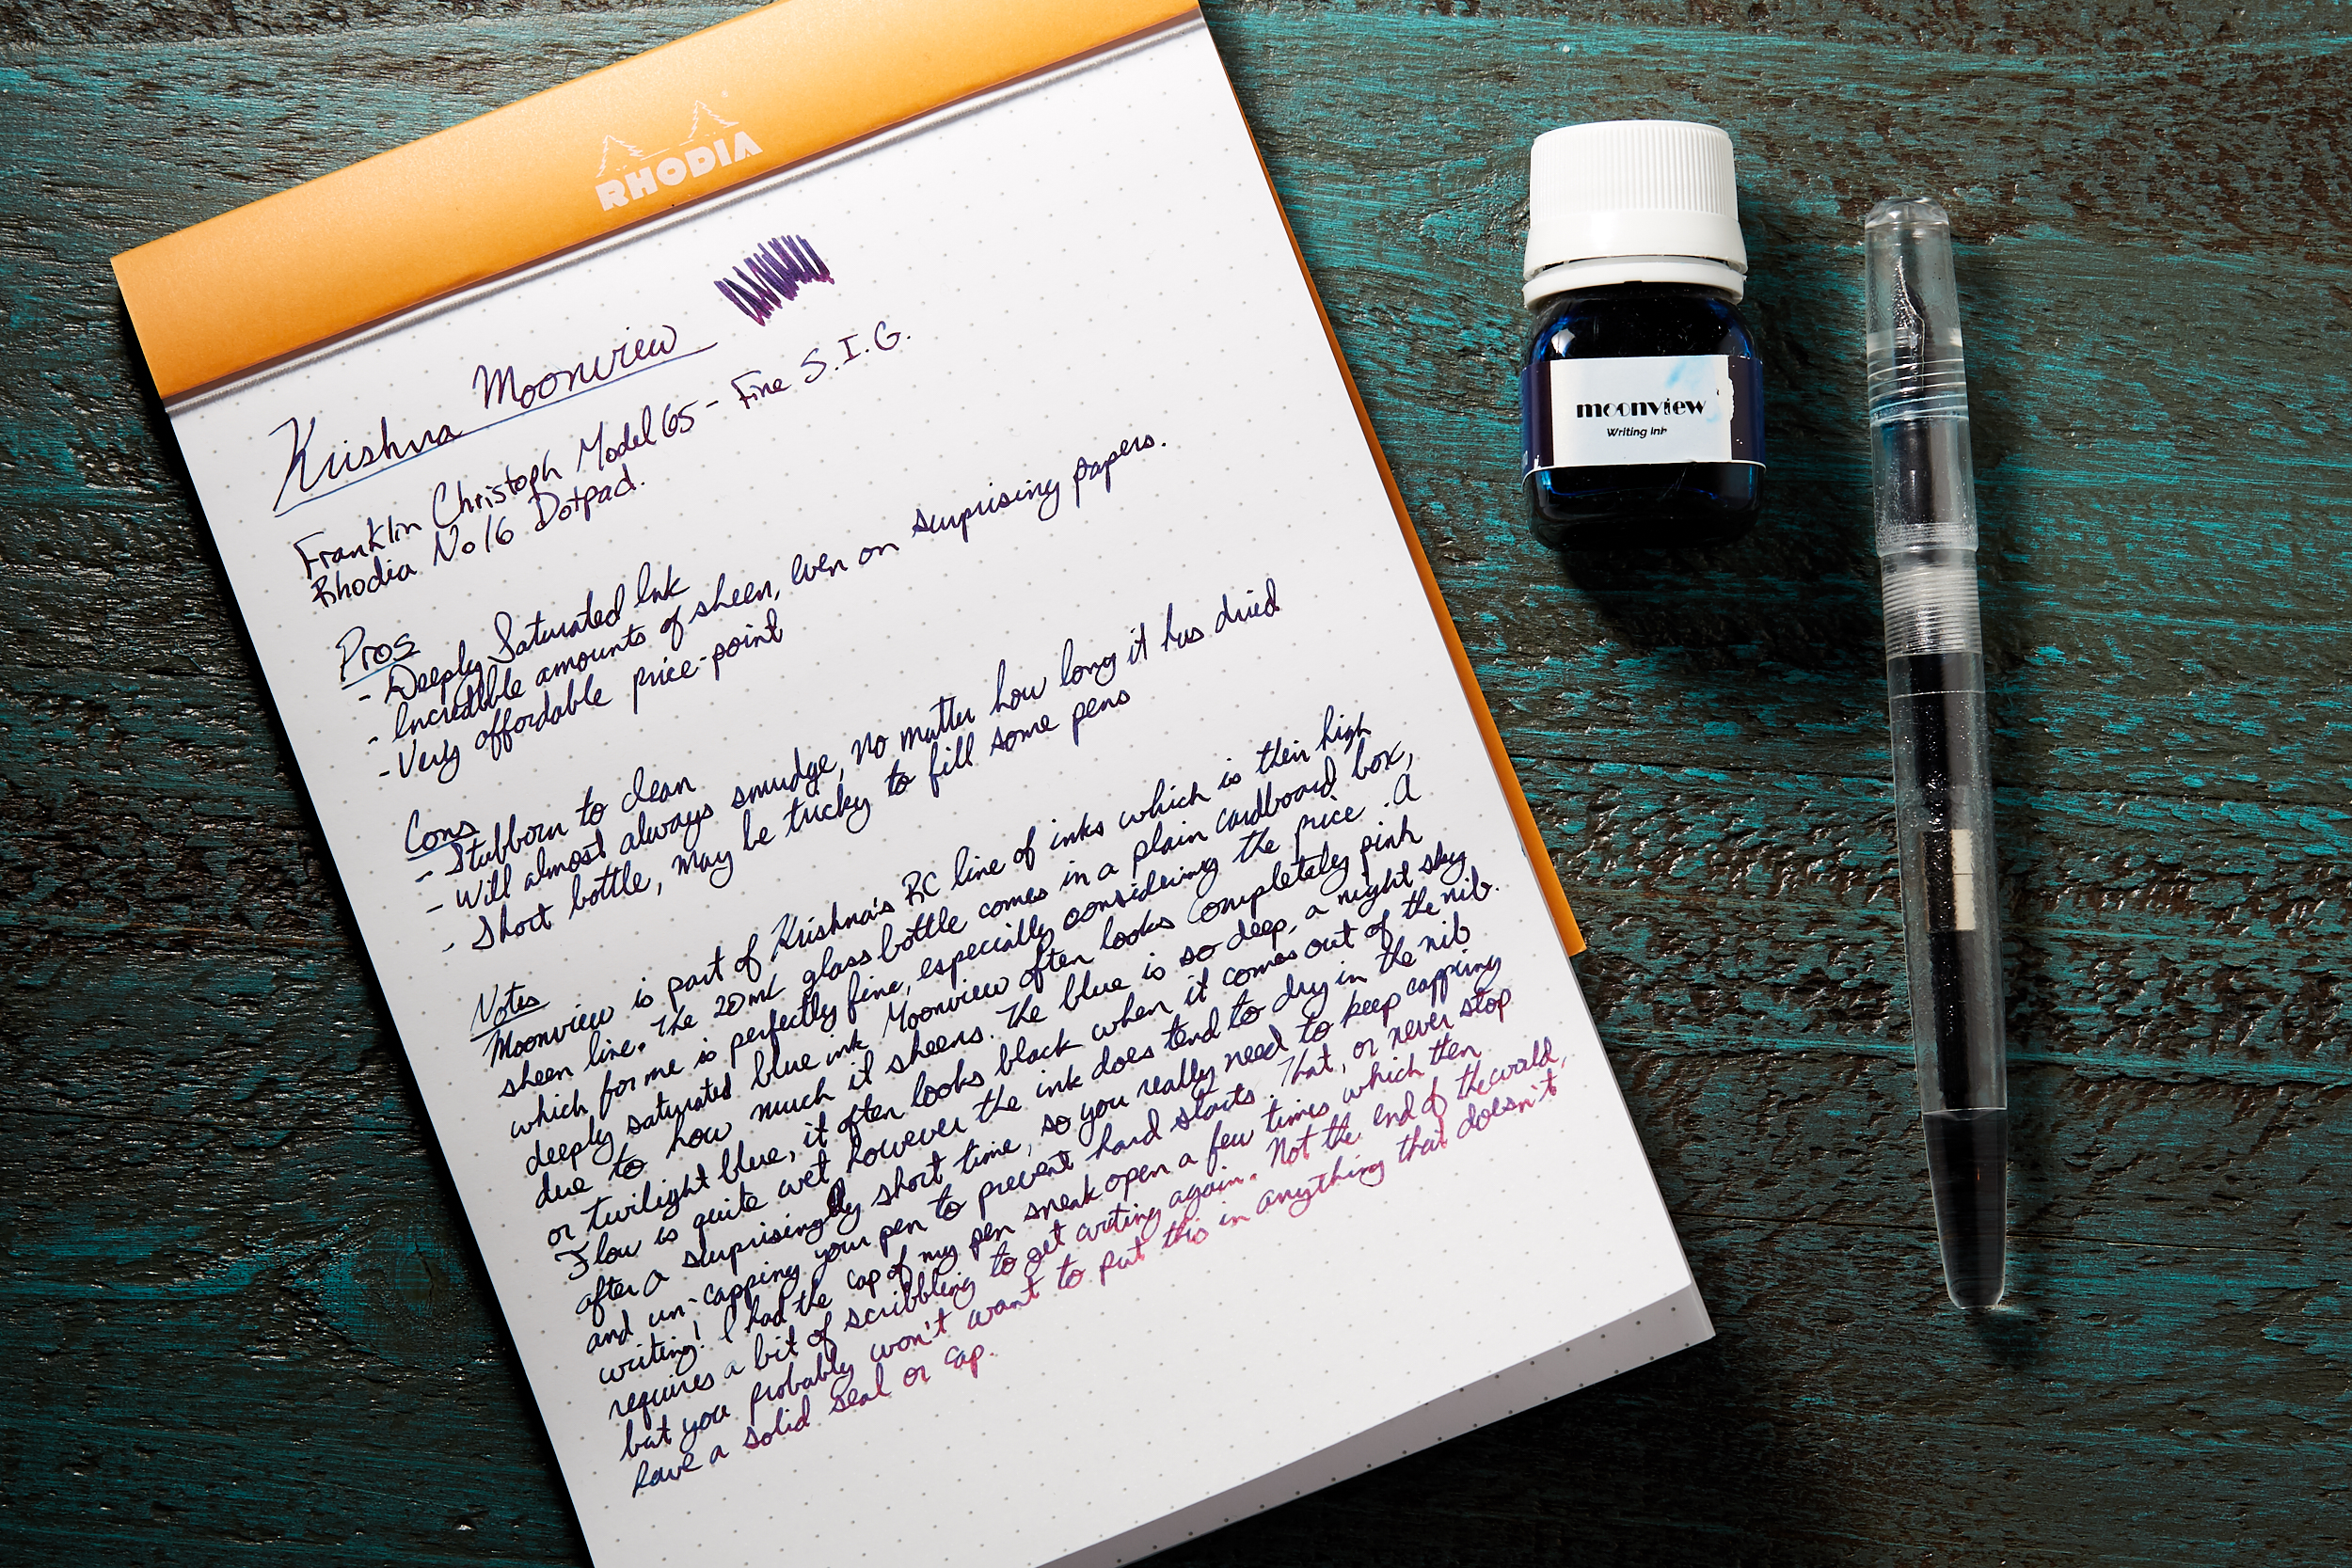 RHODIA
Krishna Moonview
Franklin Christoph Model 65 - Fine S.I.G.
Rhodia No 16 Dotpad.
Pros
- Deeply Saturated Ink
- Incredible amounts of sheen, even on surprising papers.
- Very affordable price-point
Cons
- Stubborn to clean
- Will almost always smudge, no matter how long it has dried
- Short bottle, may be tricky to fill some pens
Notes
Moonview is part of Krishna's RC line of inks which is their high
sheen line. The 20mL glass bottle comes in a plain cardboard box,
which for me is perfectly fine, especially considering the price. A
deeply saturated blue ink Moonview often looks completely pink
due to how much it sheens. The blue is so deep, a night sky
or twilight blue, it often looks black when it comes out of the nib.
Flow is quite wet however the ink does tend to dry in the nib
after a surprisingly short time, so you really need to keep capping
and un-capping your pen to prevent hard starts. That, or never stop
writing! I had the cap of my pen sneak open a few times which then
requires a bit of scribbling to get writing again. Not the end of the world,
but you probably won't want to put this in anything that doesn't
have a solid seal or cap.
moonview
Writing Ink